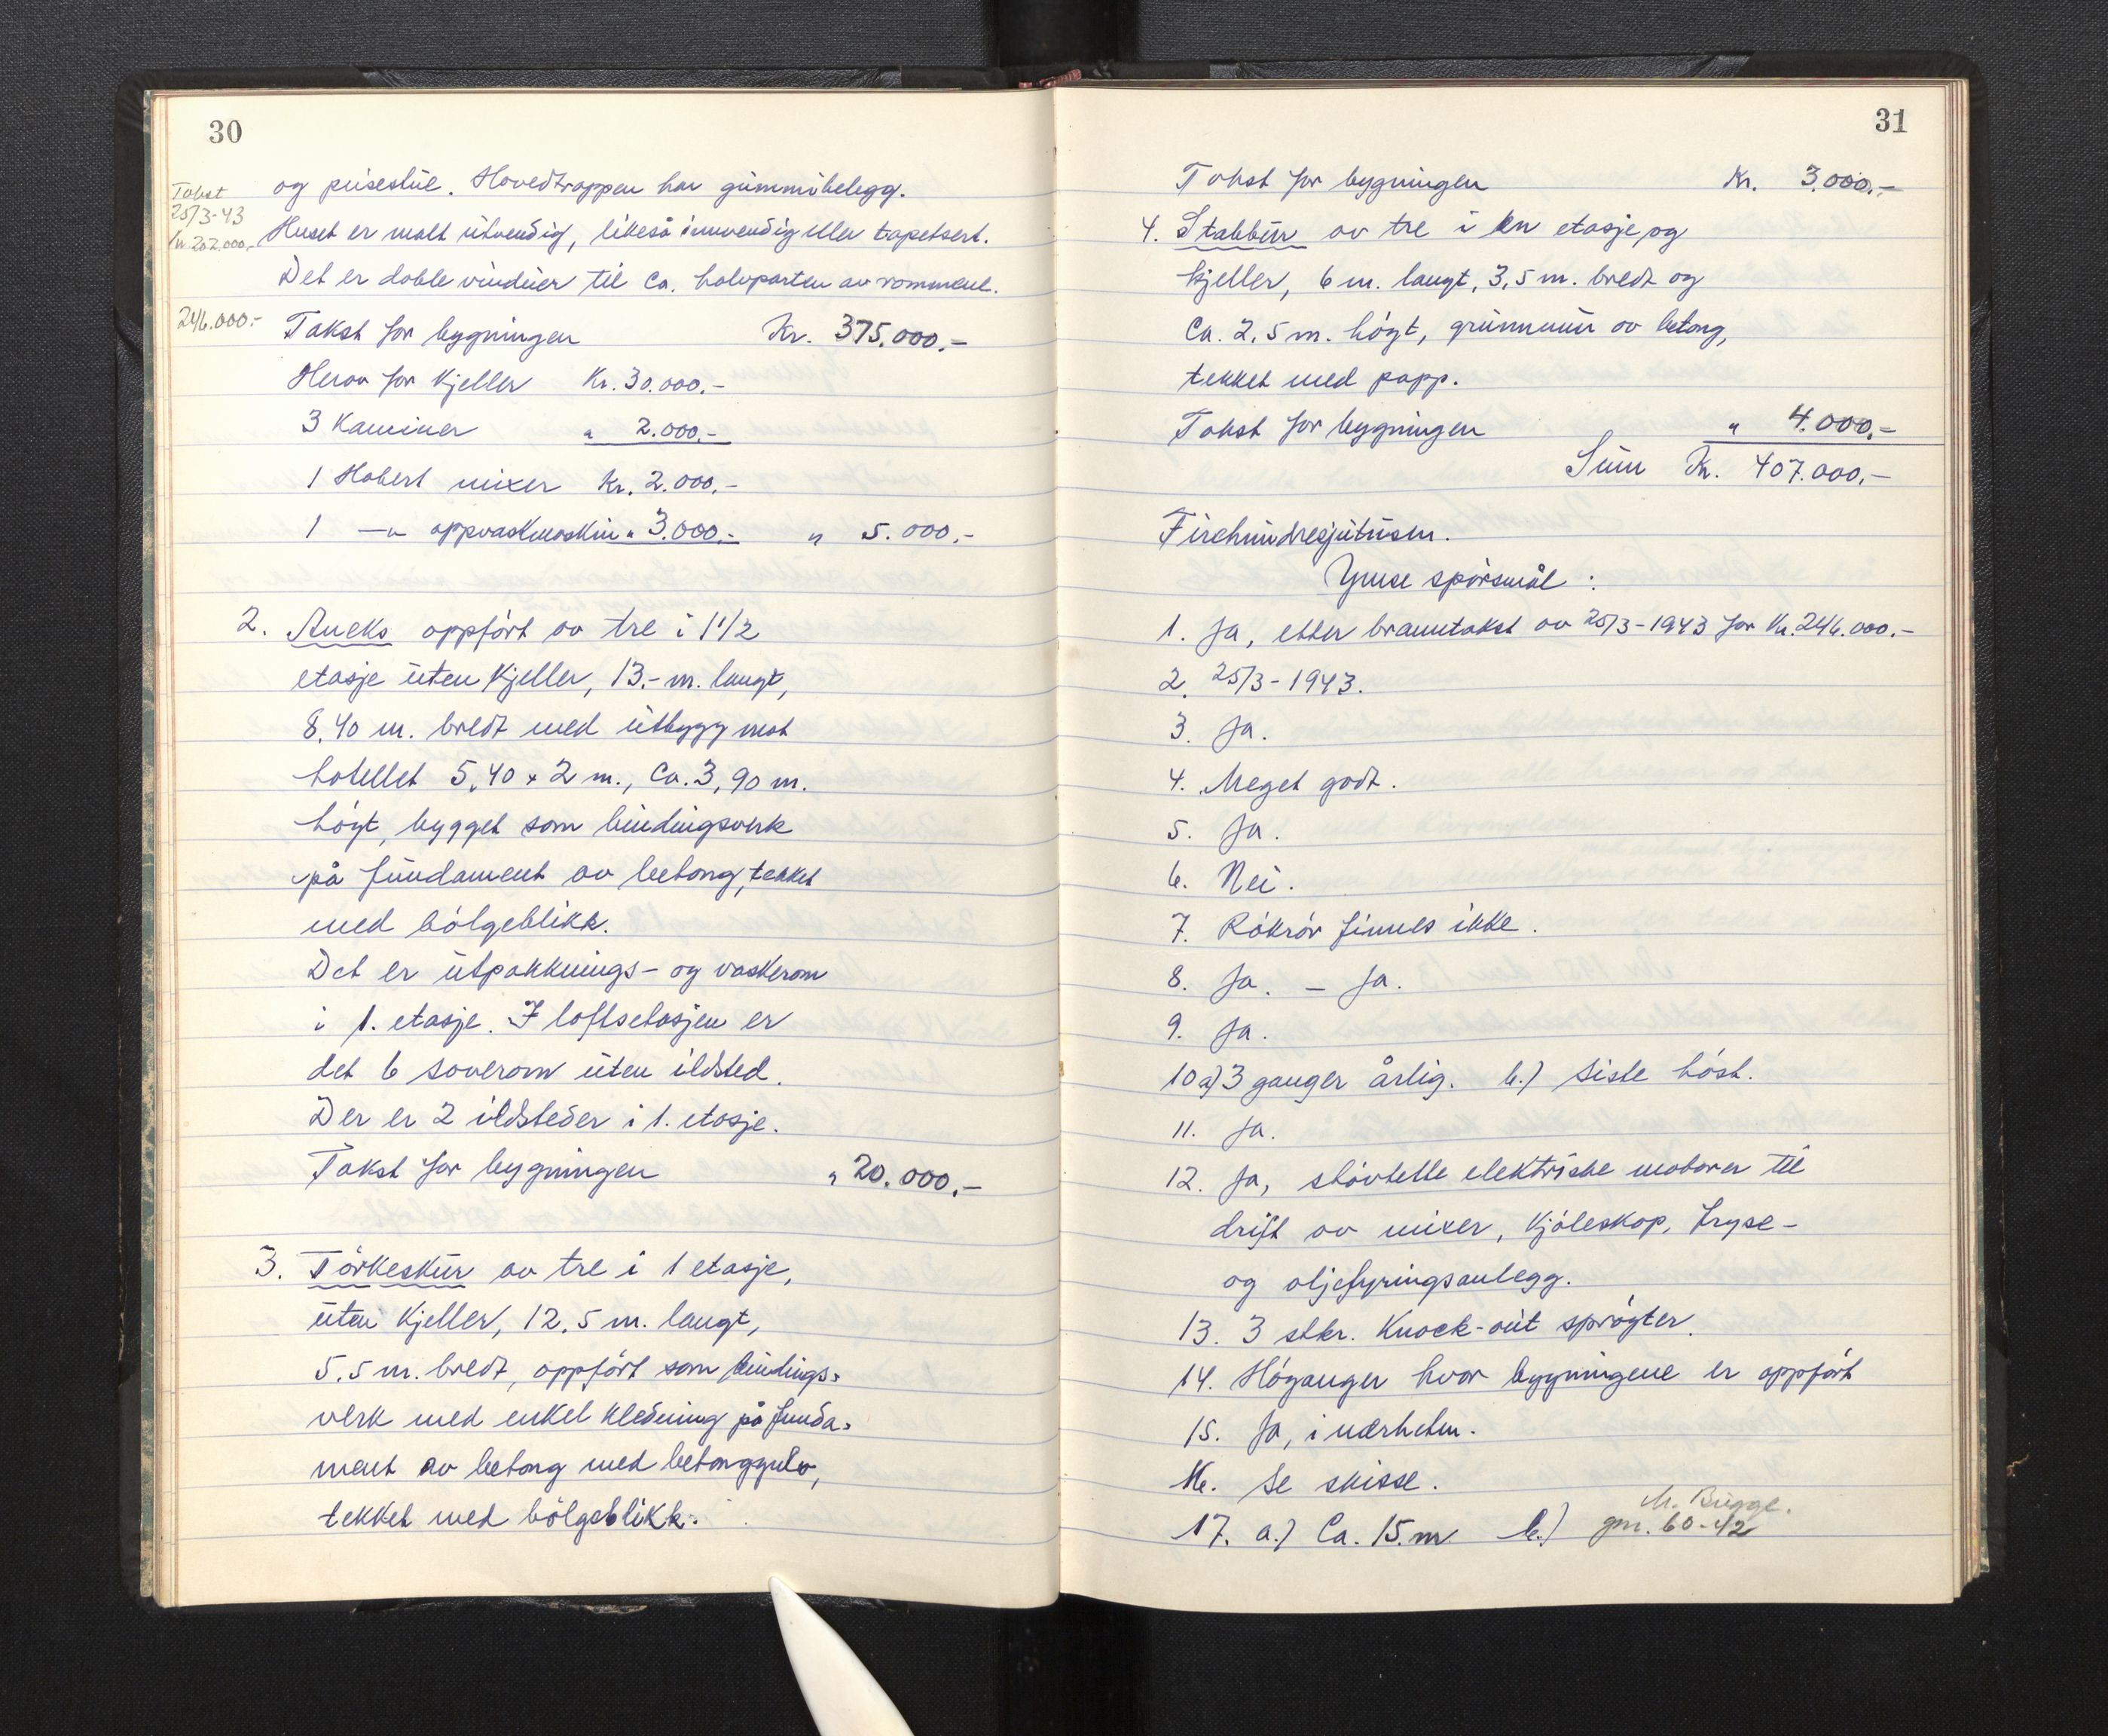 30
Takst
25/3-43
Kr. 202.000,-
og peisestue. Hovedtrappen har gummibelegg.
Huset er malt utvendig, likeså innvendig eller tapetsert.
Det er doble vinduer til ca. halvparten av rommene.
246.000:-
Takst for bygningen Kr. 375.000,-
Herav for kjeller Kr. 30.000,-
3 Kaminer " 2.000,-
1 Hobert mixer Kr. 2.000,-
1 —"— oppvaskmaskin " 3.000,- " 5.000,-
2. Aneks oppført av tre i 1 1/2
etasje uten kjeller, 13,- m. langt,
8,40 m. bredt med utbygg mot
hotellet 5,40 x 2 m., Ca. 3,90 m.
høgt, bygget som bindingsverk
på fundament av betong, tekket
med bölgeblikk.
Det er utpakknings- og vaskerom
i 1. etasje. I loftsetasjen er
det 6 soverom uten ildsted.
Der er 2 ildsteder i 1. etasje.
Takst for bygningen " 20.000,-
3. Törkeskur av tre i 1 etasje,
uten kjeller, 12,5 m. langt,
5,5 m. bredt, oppfört som bindings-
verk med enkel kledning på funda-
ment av betong med betonggulv,
tekket med bölgeblikk.
31
Takst for bygningen Kr. 3.000,-
4. Stabbur av tre i en etasje og
kjeller, 6 m. langt, 3,5 m. bredt og
Ca. 2,5 m. högt, grunnmur av betong,
tekket med papp.
Takst for bygningen " 4.000,-
Sum Kr. 407.000,-
Firehundresjutusen.
Ymse spörsmål :
1. Ja, etter branntakst av 25/3-1943 for Kr. 246.000.-
2. 25/3-1943.
3. Ja.
4. Meget godt.
5. Ja.
6. Nei.
7. Rökrör finnes ikke.
8. Ja. - Ja.
9. Ja.
10 a) 3 ganger årlig. b.) Siste höst.
11. Ja.
12. Ja, stövtette elektriske motorer til
drift av mixer, kjöleskap, fryse-
og oljefyringsanlegg.
13. 3 stkr. Knock-out spröyter.
14. Höyanger hvor bygningene er oppfört
15. Ja, i nærheten.
16. Se skisse.
17. a.) Ca. 15. m. b.) M. Brügge.
gnr. 60-42